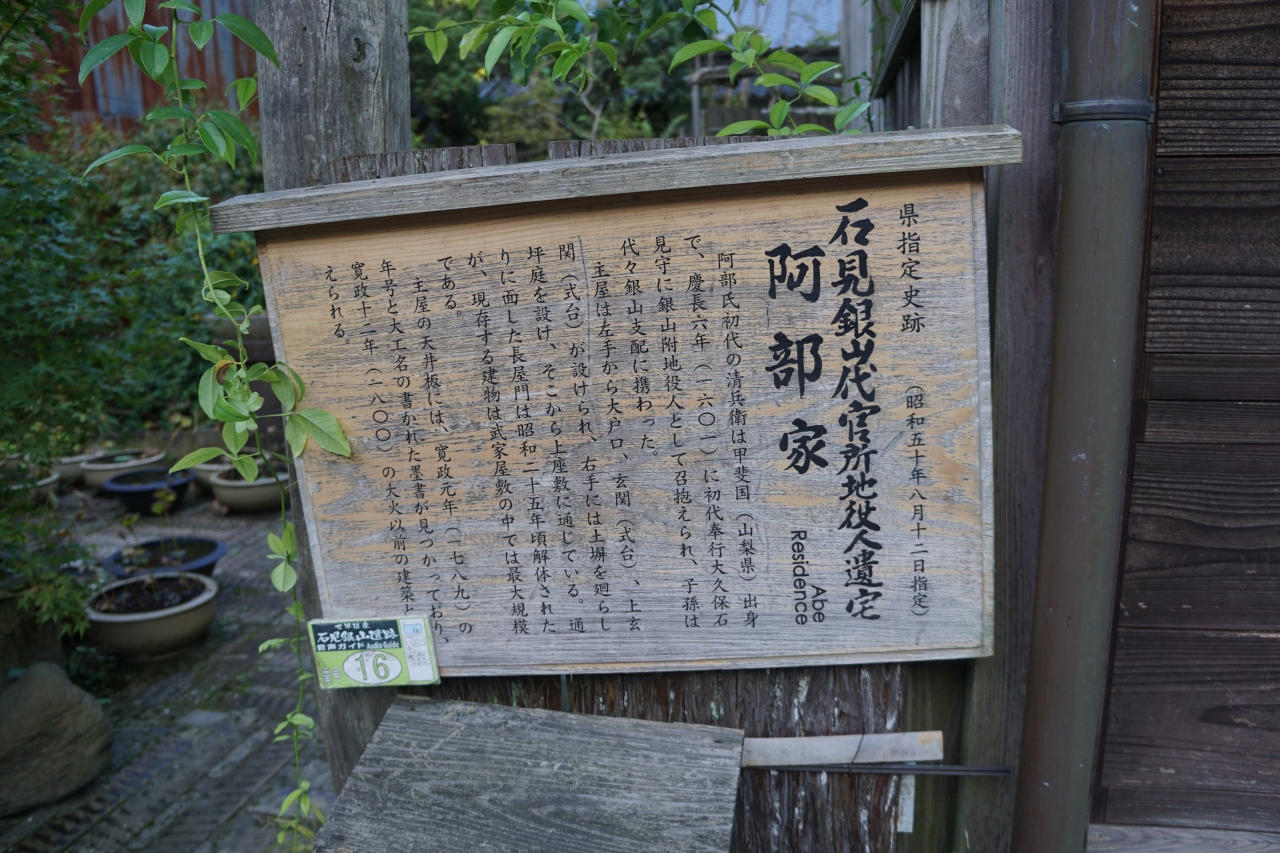 県指定史跡　（昭和五十年八月十二日指定）
石見銀山代官所地役人遺宅
阿部家
Abe
Residence
阿部氏初代の清兵衛は甲斐国（山梨県）出身
で、慶長六年（一六〇一）に初代奉行大久保石
見守に銀山附地役人として召抱えられ、子孫は
代々銀山支配に携わった。
主屋は左手から大戸口、玄関（式台）、上玄
関（式台）が設けられ、右手には土塀を廻らし
坪庭を設け、そこから上座敷に通じている。通
りに面した長屋門は昭和二十五年頃解体された
が、現存する建物は武家屋敷の中では最大規模
である。
主屋の天井板には、寛政元年（一七八九）の
年号と大工名の書かれた墨書が見つかっており、
寛政十二年（一八〇〇）の大火以前の建築と
えられる。
世界遺産
石見銀山遺跡
音声ガイド Audio Guide
16